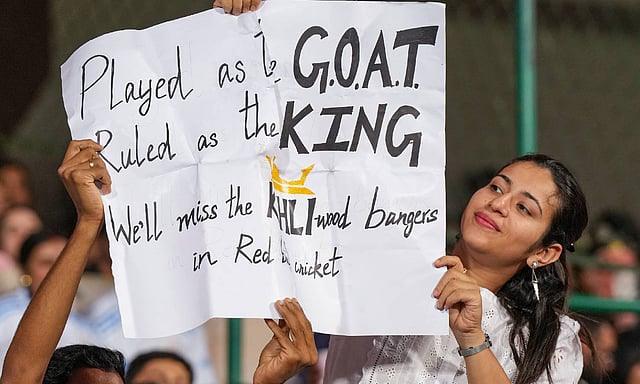 Played as G.O.A.T.
Ruled as the KING
We'll miss the KHLI-wood bangers
in Red cricket